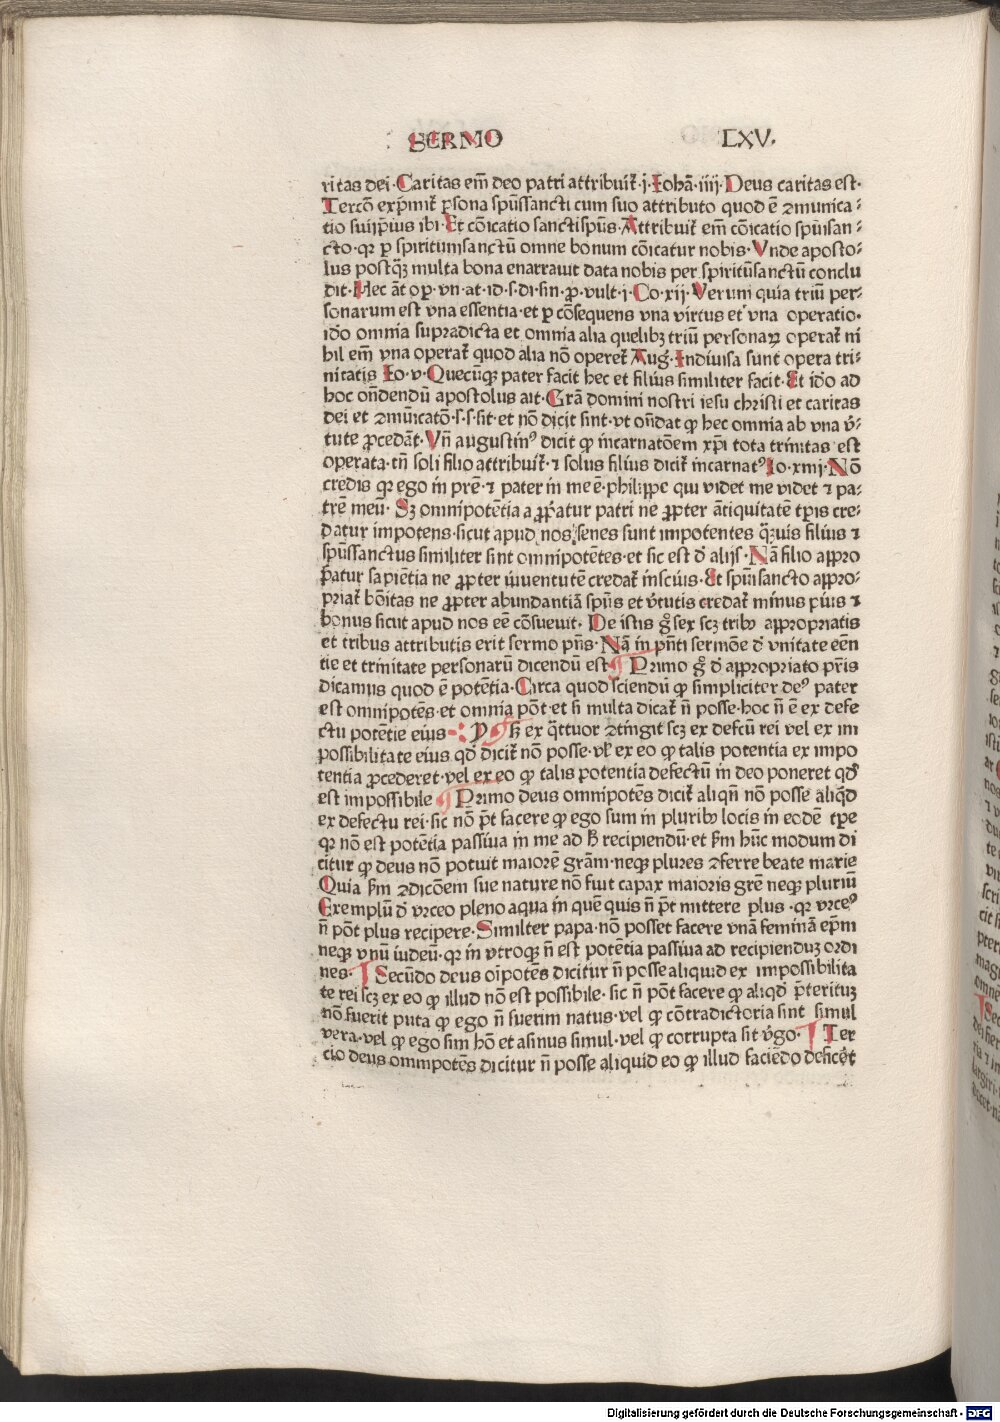 SERMO LXV.
ritas dei. Caritas em̄ deo patri attribuit᷑. j. Iohā. iiij. Deus caritas est.
Tercō exp̄mit᷑ ꝑsona spūssancti cum suo attributo quod ē ꝯmunica-
tio sui ip̄ius ibi. Et cōicatio sancti sp̄us. Attribuit᷑ em̄ cōicatio spūisan-
cto. qꝛ ꝑ spiritumsanctū omne bonum cōicatur nobis. Vnde aposto-
lus postq̄ꝫ multa bona enarrauit data nobis per spiritūsanctū conclu
dit. Hec āt oꝑ. vn. at. id. s. di. sin. ꝓ. vult. j. Co. xij. Verum quia triū per-
sonarum est vna essentia. et ꝑ cōsequens vna virtus et vna operatio.
idō omnia supradicta et omnia alia quelibꝫ triū personaꝝ operat᷑ ni
hil em̄ vna operat᷑ quod alia nō operet᷑ Aug. Indiuisa sunt opera tri-
nitatis Io. v. Quecūqꝫ pater facit hec et filius similiter facit. Et idō ad
hoc on̄dendū apostolus ait. Grā domini nostri iesu christi et caritas
dei et ꝯmūicatō. s. s. sit. et nō dicit sint. vt on̄dat ꝙ hec omnia ab vna v̄-
tute ꝓcedāt. Vn̄ augustinꝰ dicit ꝙ incarnatōem xp̄i tota trinitas est
operata. tn̄ soli filio attribuit᷑. ⁊ solus filius dicit᷑ incarnatꝰ Io. xiiij. Nō
credis qꝛ ego in pr̄e. ⁊ pater in me ē. philippe qui videt me videt ⁊ pa-
trē meū. Sꝫ omnipotētia a ꝓp̄atur patri ne ꝓpter ātiquitatē tp̄is cre-
datur impotens. sicut apud nos senes sunt impotentes q̄uis filius ⁊
spūssanctus similiter sint omnipotētes. et sic est d̄ alijs. Nā filio appro
p̄atur sapiētia ne ꝓpter iuuentutē credat᷑ insciis. Et spūisancto appro-
priat᷑ bōitas ne ꝓpter abundantiā sp̄us et v̄tutis credat᷑ minus pius ⁊
bonus sicut apud nos eē cōsueuit. De istis g̊ sex scꝫ tribꝰ appropriatis
et tribus attributis erit sermo pn̄s. Nā in pn̄ti sermōe d̄ vnitate eēn
tie et trinitate personarū dicendū est Primo g̊ d̄ appropriato pr̄is
dicamus quod ē potētia. Circa quod sciendū ꝙ simpliciter deꝰ pater
est omnipotēs. et omnia pōt. et si multa dicat᷑ n̄ posse. hoc n̄ ē ex defe
ctu potētie eius ex q̄ttuor ꝯtingit scꝫ ex defcū rei vel ex im
possibilitate eius qd̓ dicit᷑ nō posse. vl̓ ex eo ꝙ talis potentia ex impo
tentia ꝓcederet. vel ex eo ꝙ talis potentia defectū in deo poneret qd̓
est impossibile Primo deus omnipotēs dicit᷑ aliqn̄ nō posse aliq̄d
ex defectu rei. sic nō p̄t facere ꝙ ego sum in pluribꝰ locis in eodē tp̄e
qꝛ nō est potētia passiua in me ad h̄ recipiendū. et ẜm hūc modum di
citur ꝙ deus nō potuit maiorē grām. neqꝫ plures ꝯferre beate marie
Quia ẜm ꝯdicōem sue nature nō fuit capax maioris grē neqꝫ pluriū
Exemplū d̄ vrceo pleno aqua in quē quis n̄ p̄t mittere plus. qꝛ vrceꝰ
n̄ pōt plus recipere. Similter papa. nō posset facere vnā feminā ep̄m
neqꝫ vnū iudeū. qꝛ in vtroqꝫ n̄ est potētia passiua ad recipienduꝫ ordi
nes. Secūdo deus oīpotēs dicitur n̄ posse aliquid ex impossibilita
te rei scꝫ ex eo ꝙ illud nō est possibile. sic n̄ pōt facere ꝙ aliqd̓ p̄terituꝫ
nō fuerit puta ꝙ ego n̄ fuerim natus. vel ꝙ cōtradictoria sint simul
vera. vel ꝙ ego sim hō et asinus simul. vel ꝙ corrupta sit v̄go. Ter
cio deus omnipotēs dicitur n̄ posse aliquid eo ꝙ illud faciēdo deficēt
Digitalisierung gefördert durch die Deutsche Forschungsgemeinschaft - DFG